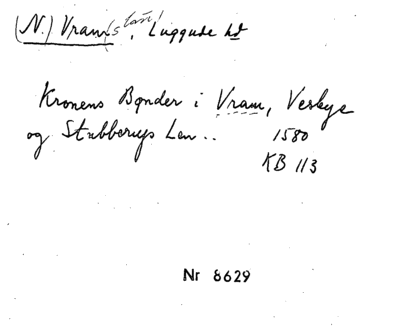 (N.) Vram(s län), Luggude hd
Kronens Bønder i Vram, Verbye
og Stubberups Len..
1580
KB 113
Nr 8629